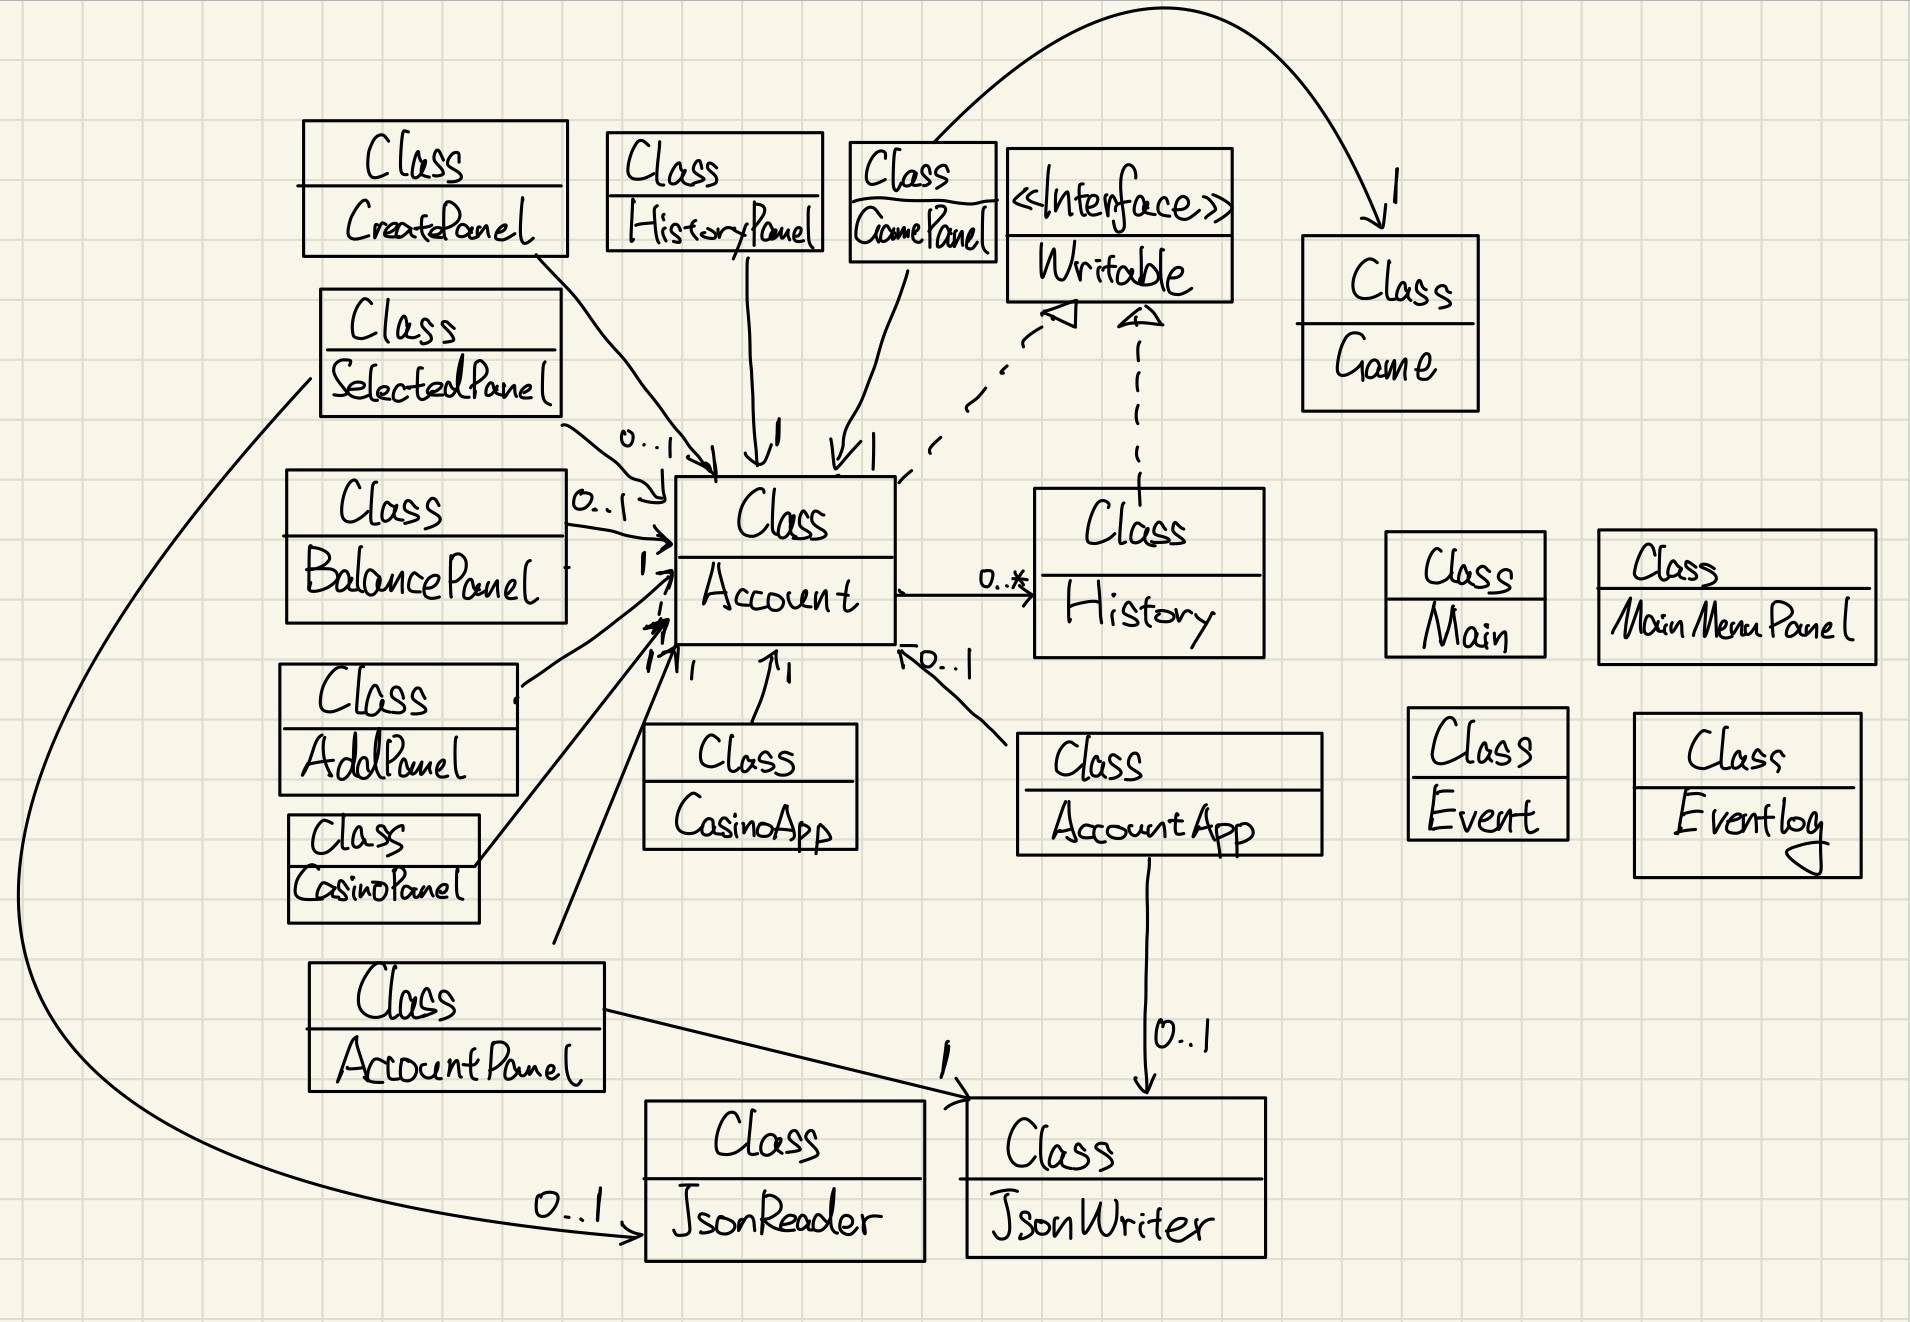 Class
CreatePanel
Class
HistoryPanel
1
Class
GamePanel
1
1
<<Interface>>
Writable
Class
Game
Class
SelectedPanel
0..1
Class
BalancePanel
0..1
1
Class
Account
0..*
Class
History
Class
Main
Class
MainMenuPanel
Class
AddPanel
1
1
1
0..1
Class
CasinoApp
Class
AccountApp
Class
Event
Class
EventLog
Class
CasinoPanel
Class
AccountPanel
1
0..1
Class
JsonReader
0..1
Class
JsonWriter